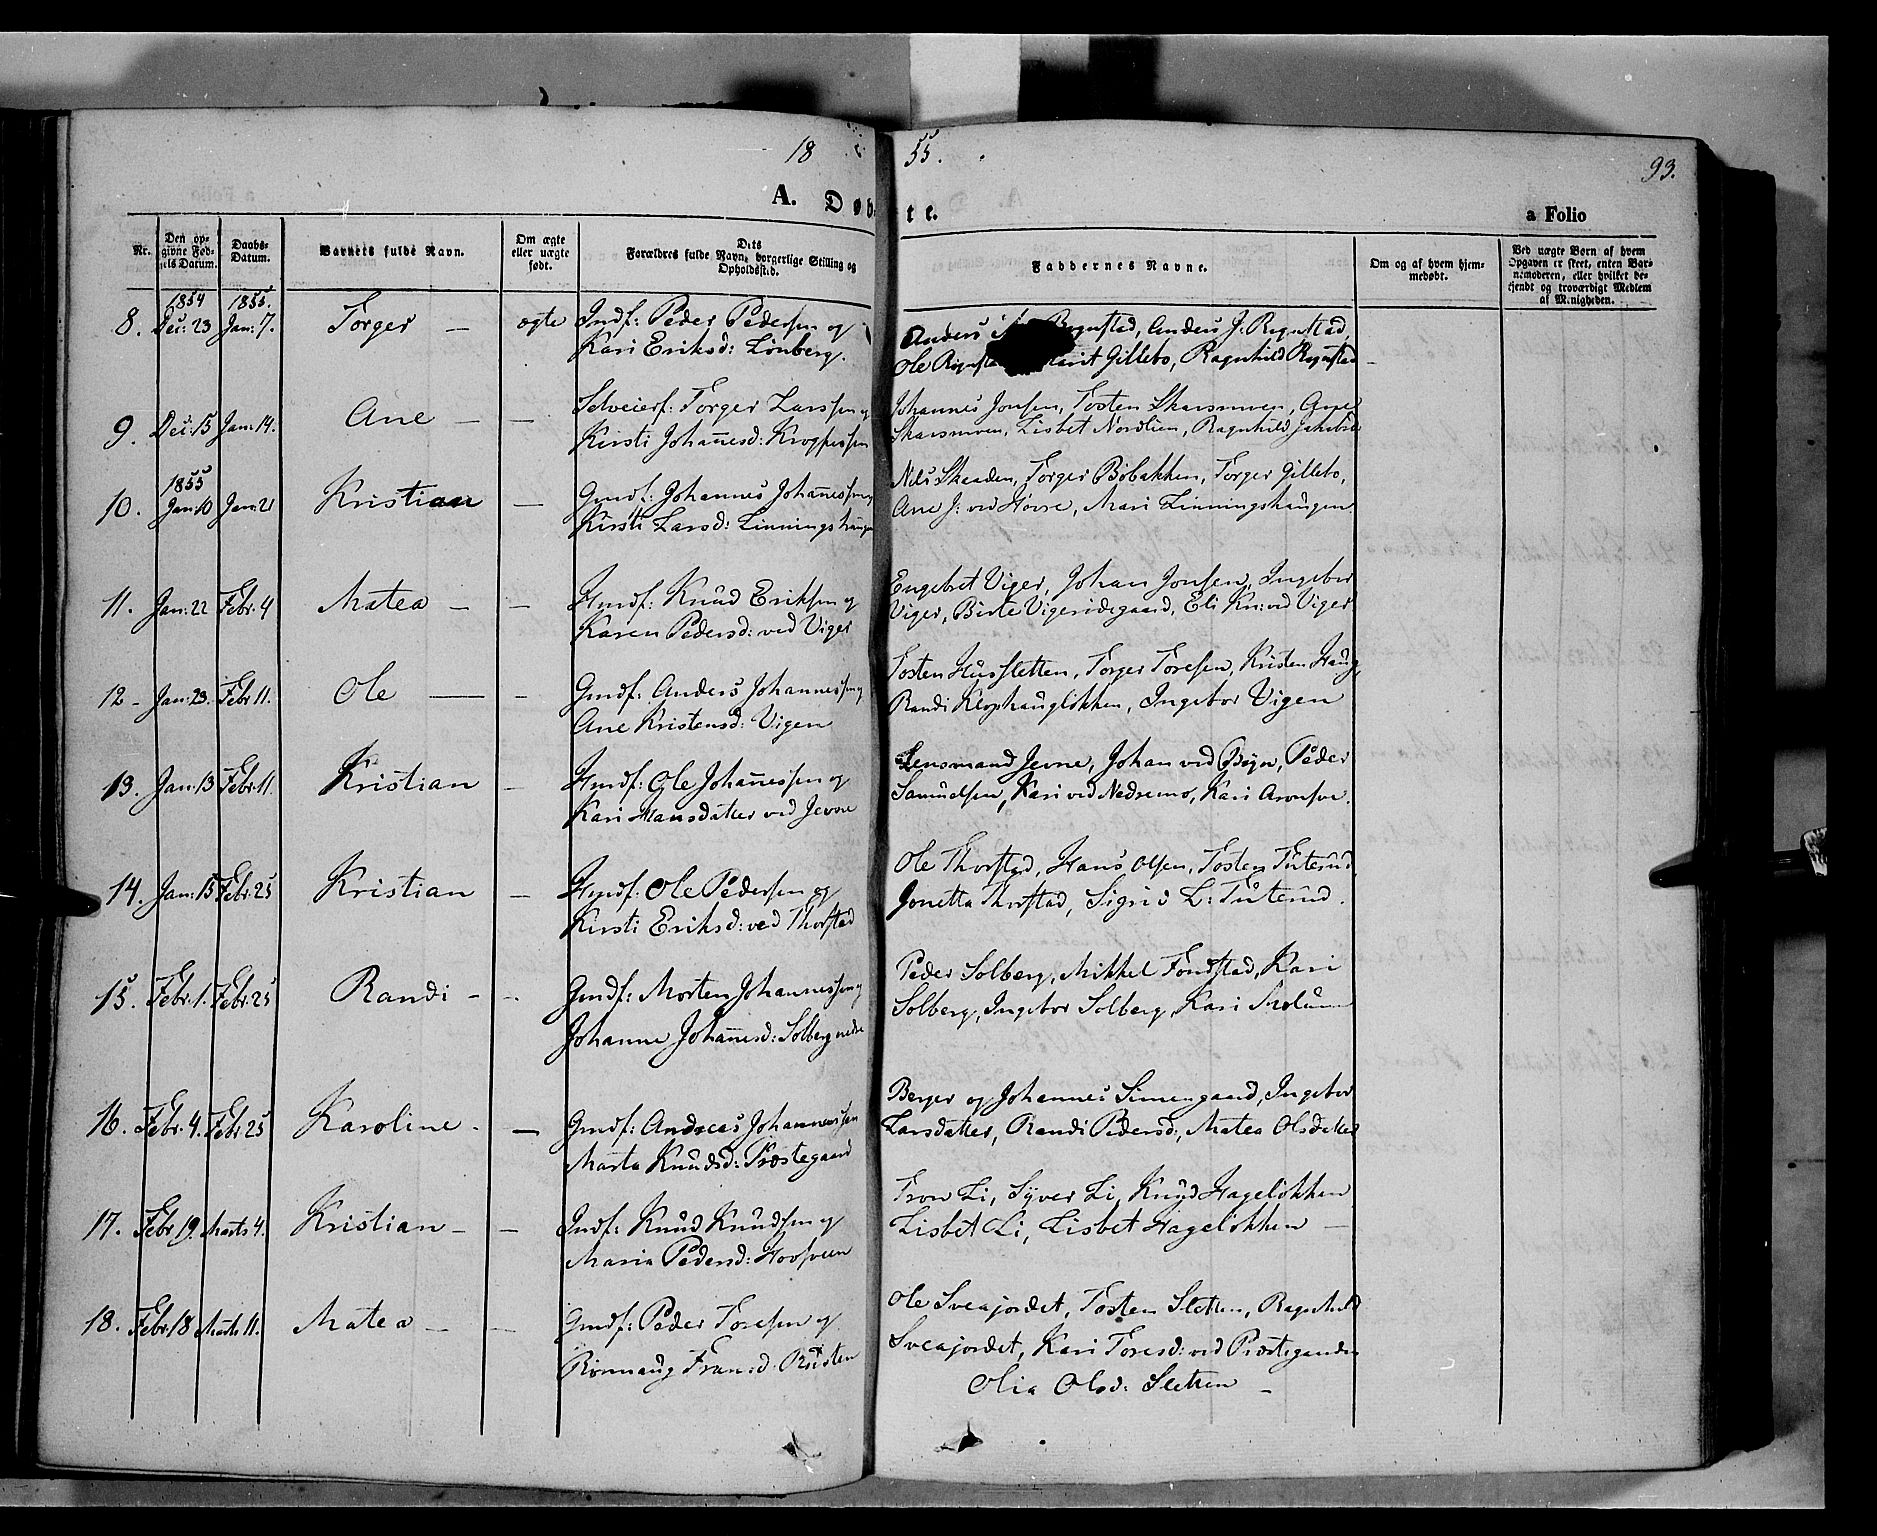 18 55.
93.
A. Døbte.
a Folio
Nr.
Den opgivne Fødsels Datum.
Daabs-Datum.
Barnets fulde Navn.
Om ægte eller uægte født.
Dets Forældres fulde Navn, borgerlige Stilling og Opholdssted.
Faddernes Navne.
Om og af hvem hjemmedøbt.
Ved uægte Børn af hvem Opgaven er skeet, enten Barnemoderen, eller hvilket bekjendt og troværdigt Medlem af Menigheden.
1854 1855.
8. Dec: 23 Jan: 7. Torger — ægte Indf: Peder Pedersen og
Kari Eriksd: Lønberg.
Anders Rognstad, Anders J: Rognstad,
Ole Marit Gillebo, Ragnhild Rognstad
9. Dec: 15 Jan: 14. Ane — — Selveierf: Torger Larssen og
Kirsti Johannesd:
Johannes Jonsen, Tosten Skarsmoen, Ane
Skarsmoen, Lisbet Nordlien, Ragnhild
1855
10. Jan: 10 Jan: 21 Kristian — Gmdf: Johannes Johannessen og
Kirsti Larsd: Linningshaugen
Nils Skaaden, Torger Bøbakken, Torger Gillebo,
Ane J: ved Hovre, Mari Linningshaugen
11. Jan: 22 Febr. 4 Matea — — Hmdf: Knud Eriksen og
Karen Pedersd: ved Viger
Engebret Viger, Johan Jonsen, Ingebor
Viger, Birte Vigeridegaard, Eli Kn: ved Viger
12 - Jan: 23. Febr. 11. Ole — — Gmdf: Anders Johannessen og
Ane Kristensd: Vigen
Tosten Husstetten, Torger Toresen, Kristen Haug,
Randi Klophaugløkken, Ingebor Vigen
13. Jan: 13 Febr. 11. Kristian — Hmdf: Ole Johannessen og
Kari Hansdatter ved Jevne
Lensmand Jevne, Johan ved Bøyn, Peder
Samuelsen, Kari ved Nedremo, Kari
14. Jan: 15 Febr. 25 Kristian — Hmdf: Ole Pedersen og
Kirsti Eriksd: ved Thorstad
Ole Thorstad, Hans Olsen, Tosten Tuterud,
Jonetta Thorstad, Sigrid L: Tuterud.
15. Febr. 1. Febr. 25 Randi - - Gmdf: Morten Johannessen og
Johanne Johannesd: Solberg nedre
Peder Solberg, Mikkel Fondstad, Kari
Solberg, Ingebor Solberg, Kari Molunn
16. Febr. 4. Febr. 25 Karoline - — Gmdf: Andreas Johannessen
Marta Knudsd: Prestegaard
Berger og Johannes Simengaard, Ingebor
Larsdatter, Randi Pedersd:, Matea Olsdatter
17. Febr. 19. Marts 4. Kristian — — Indf: Knud Knudsen og
Maria Pedersd: Hovsveen
Tron Li, Syver Li, Knud Hageløkken
Lisbet Li, Lisbet Hageløkken —
18. Febr. 18 Marts 11. Matea — — Gmdf: Peder Toresen og
Rønnaug Fransd: Rusten
Ole Sveajordet, Tosten Sletten, Ragnhild
Sveajordet, Kari Toresd: ved Prestegarden
Olia Olsd: Sletten —